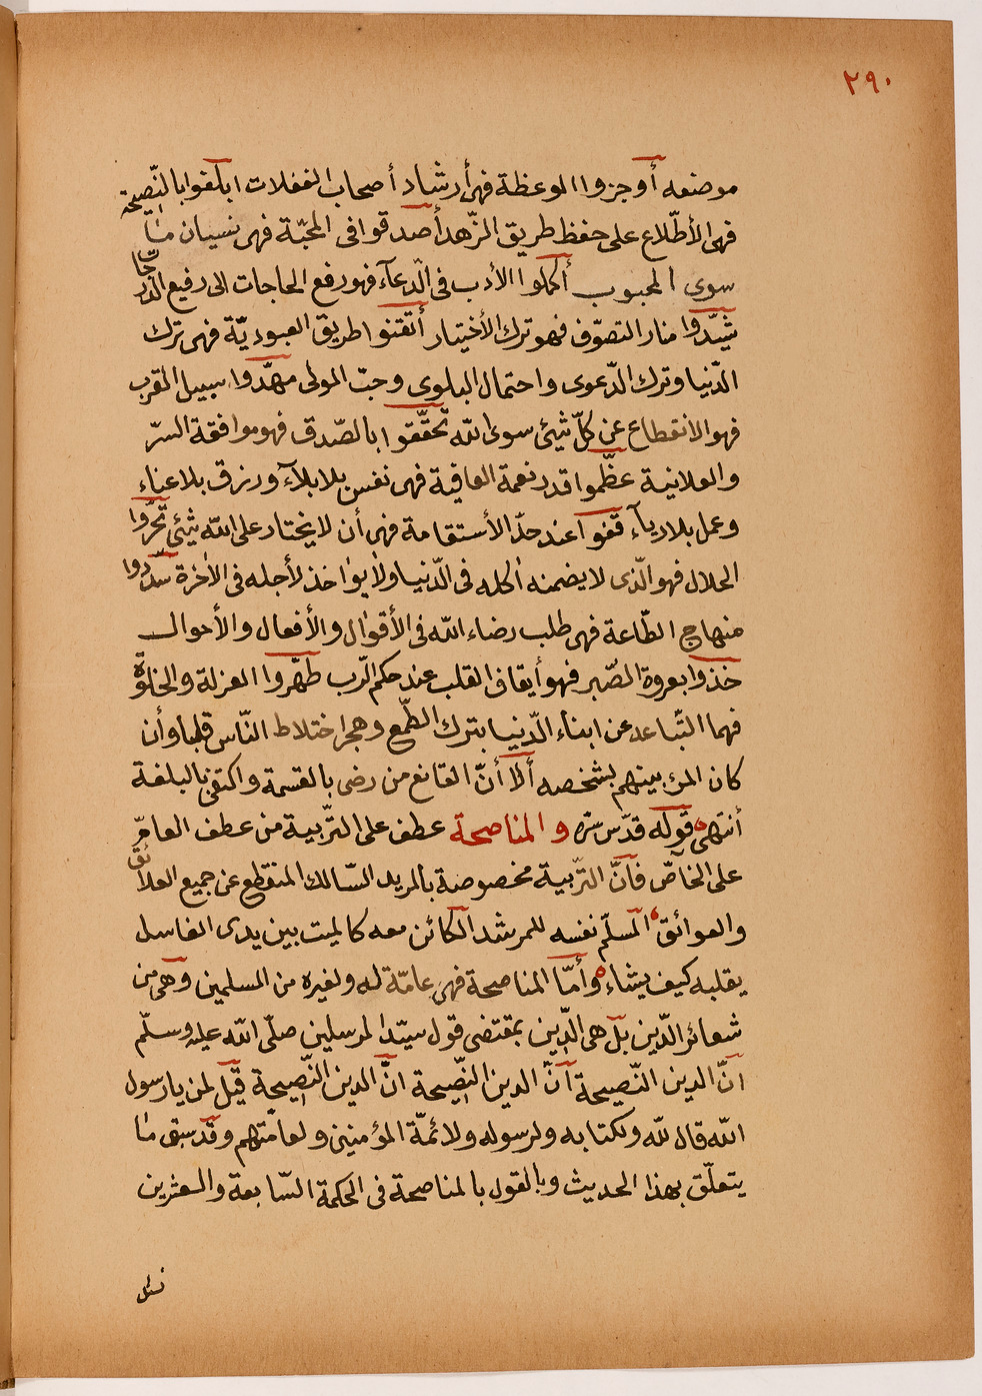 ٢٩٠
موضعه أوجزوا الموعظة فهى أرشاد أصحاب الغفلات ابلغوا بالنّصيحة
فهى الأطّلاع على حفظ طريق الزّهد أصدقوا فى المحبّة فهى نسيان ما
سوى المحبوب أكملوا الأدب فى الدّعآء فهو رفع الحاجات الى رفيع الدّرجات
شيّدوا منار التصوّف فهو ترك الأختيار أتقنوا طريق العبوديّة فهى ترك
الدّنيا وترك الدّعوى واحتمال البلوى وحبّ المولى مهّدوا سبيل المقرب
فهو الانقطاع عن كلّ شيئ سوى اللّه تحقّقوا بالصّدق فهو موافقة السرّ
والعلانية عظّموا قدر نعمة العافية فهى نفس بلا بلآء ورزق بلا عناء
وعمل بلا ريآء قفوا عند حدّ الأستقامة فهى أن لا يختار على اللّه شيئ تحرّوا
الحلال فهو الّذى لا يضمنه أكله فى الدّنيا ولا يؤاخذ لأجله فى الأخرة سدّدوا
منهاج الطّاعة فهى طلب رضاء اللّه فى الأقوال والأفعال والأحوال
خذوا بعروة الصّبر فهو أيقاف القلب عند حكم الّرب طهّروا العزلة والخلوة
فهما التّباعد عن ابناء الدّنيا بترك الطّمع وهجر اختلاط النّاس قلبا وأن
كان المرء بينهم بشخصه ألا أنّ القانع من رضى بالقسمة واكتفى بالبلغة
أنتهى قوله قدّس سرّه والمناصحة عطف على التّربية من عطف العامّ
على الخاصّ فأنّ التّربية مخصوصة بالمريد السّالك المنقطع عن جميع العلائق
والعوائق المسلّم نفسه للمرشد الكائن معه كالميت بين يدى الغاسل
يقلبه كيف يشاء وأمّا المناصحة فهى عامّة له ولغيره من المسلمين وهى من
شعائر الدّين بل هى الدّين بمقتضى قول سيّد المرسلين صلّى اللّه عليه وسلّم
انّ الدين النّصيحة انّ الدين النّصيحة انّ الدين النّصيحة قيل لمن يا رسول
اللّه قال للّه ولكتابه ولرسوله ولائمّة المؤمنين ولعامّتهم وقد سبق ما
يتعلّق بهذا الحديث وبالقول بالمناصحة فى الحكمة السّابعة والعشرين